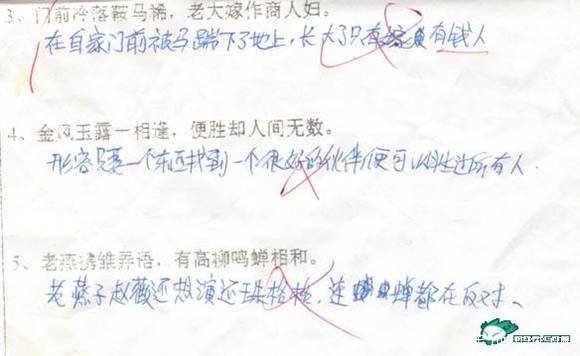 3、门前冷落鞍马稀，老大嫁作商人妇。
在自家门前被马踹下了地上，长大了只有嫁有钱人
4、金风玉露一相逢，便胜却人间无数。
形容只要一个东西找到一个很好的伙伴便可以胜过所有人.
5、老燕携雏弄语，有高柳鸣蝉相和。
老燕子赵薇还想演还珠格格，连蝉都在反对、